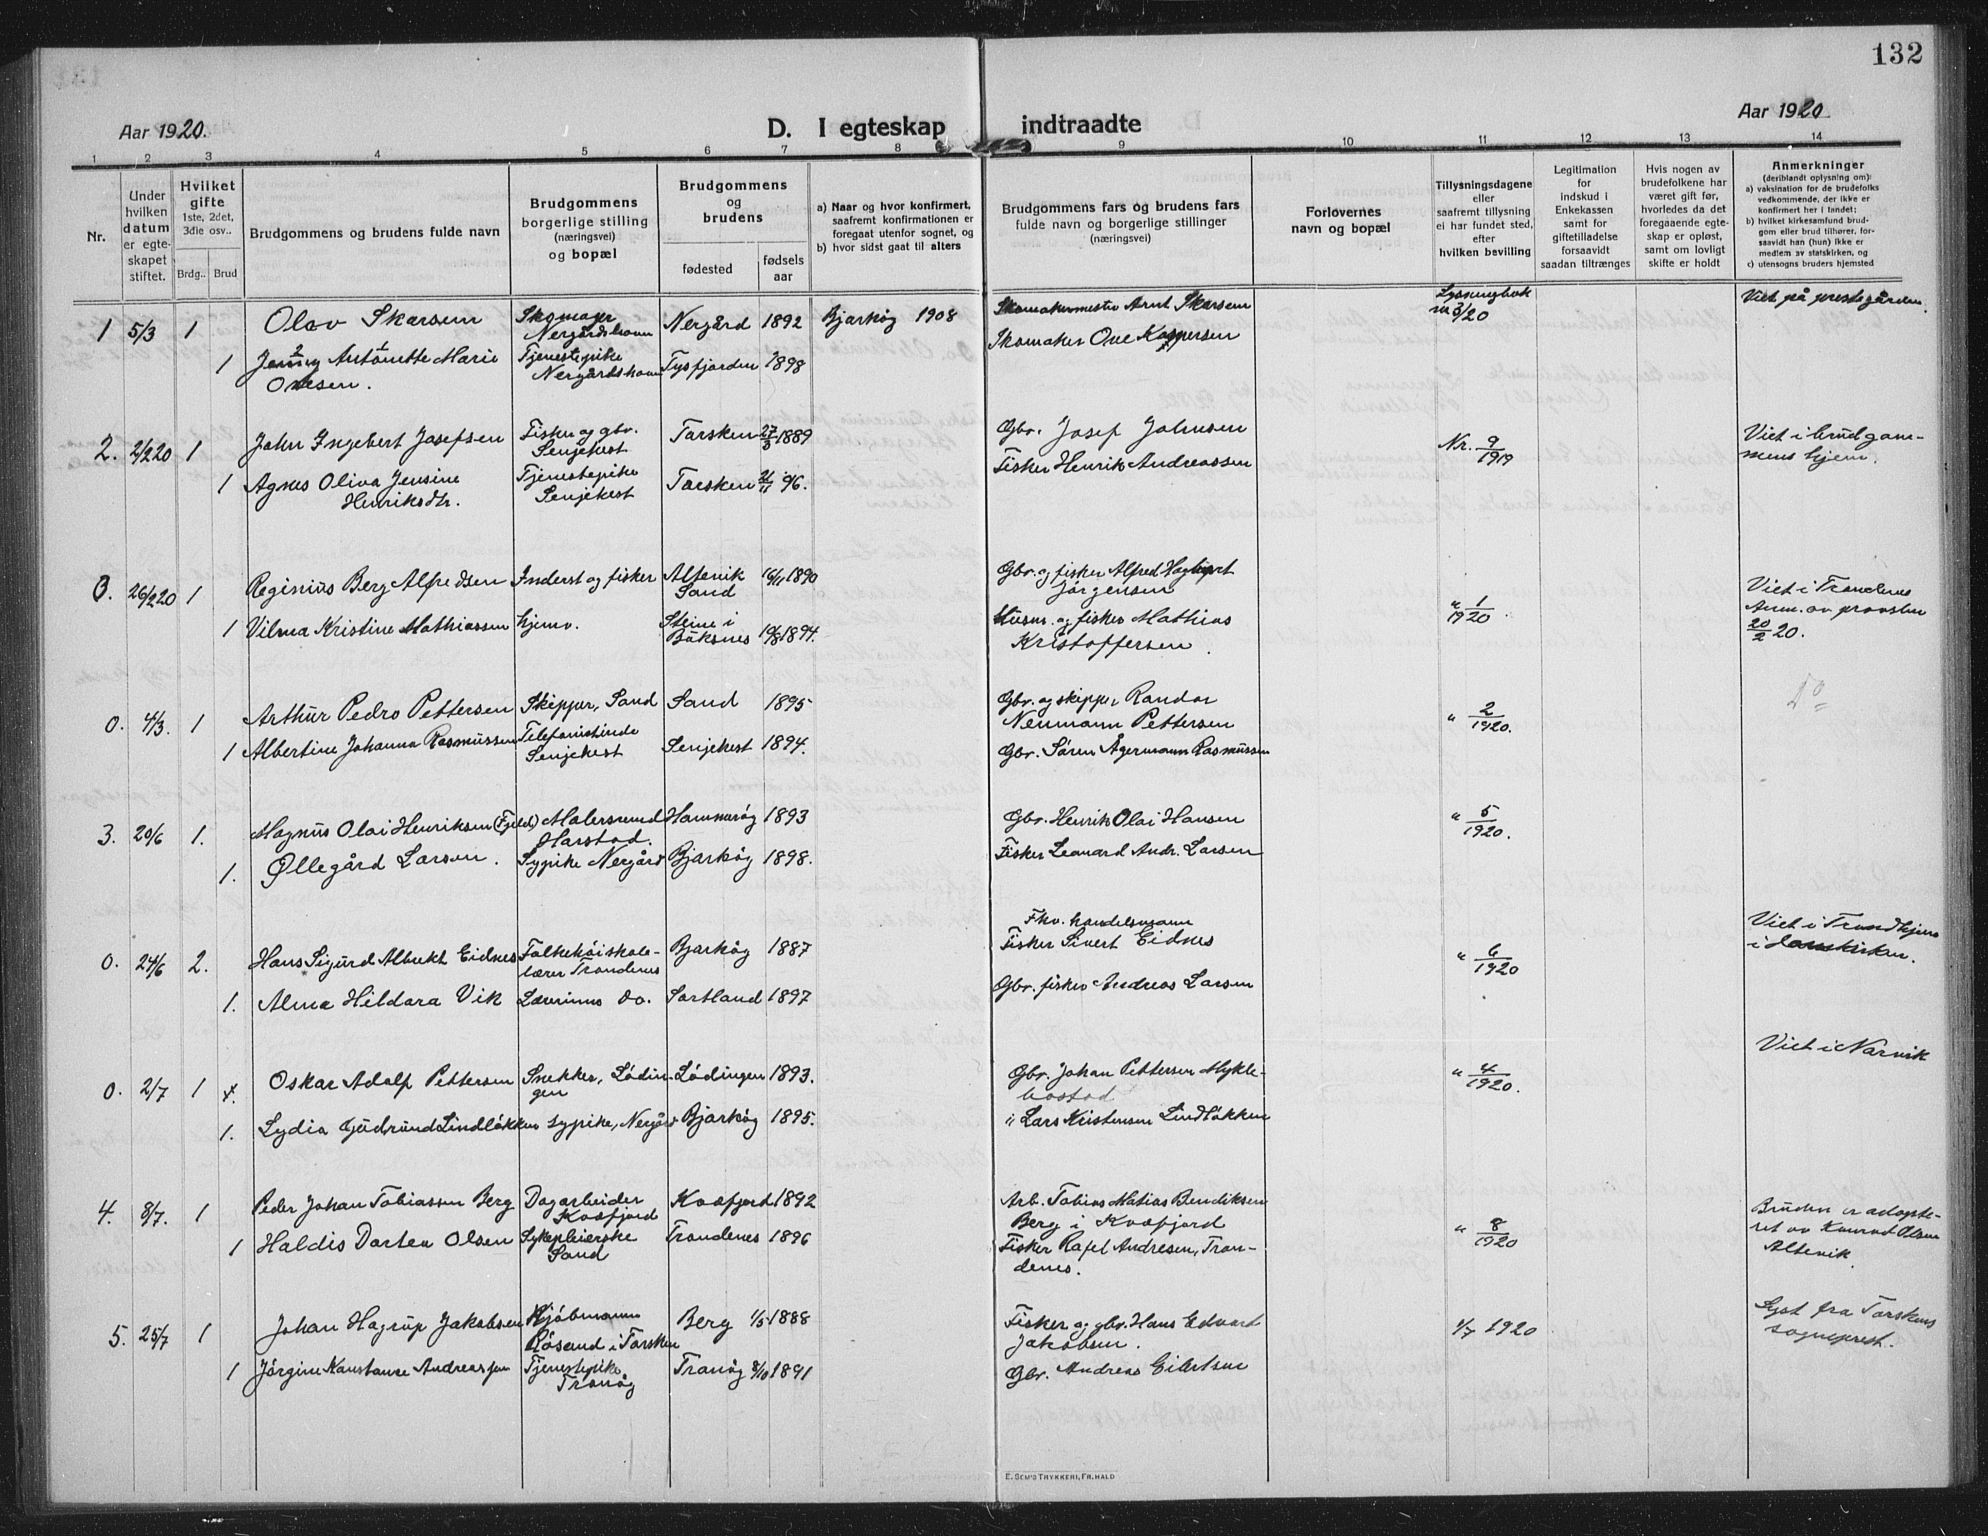 132
Aar 1920.
D. I egteskap indtraadte
Aar 1920
1 2 3 4 5 6 7 8 9 10 11 12 13 14
Nr.
Under hvilken datum er egteskapet stiftet.
Hvilket gifte
1ste, 2det, 3die osv..
Brdg.. Brud
Brudgommens og brudens fulde navn
Brudgommens borgerlige stilling (næringsvei) og bopæl
Brudgommens og brudens
fødested
fødsels aar
a) Naar og hvor konfirmert, saafremt konfirmationen er foregaat utenfor sognet, og
b) hvor sidst gaat til alters
Brudgommens fars og brudens fars fulde navn og borgerlige stillinger (næringsvei)
Forlovernes navn og bopæl
Tillysningsdagene eller saafremt tillysning ei har fundet sted, efter hvilken bevilling
Legitimation for indskud i Enkekassen samt for giftetilladelse forsaavidt saadan tiltrænges
Hvis nogen av brudefolkene har været gift før, hvorledes da det foregaaende egteskap er opløst, samt om lovligt skifte er holdt
Anmerkninger
(deriblandt oplysning om):
a) vaksination for de brudefolks vedkommende, der ikke er konfirmert her i landet;
b) hvilket kirkesamfund brudgom eller brud tilhører, forsaavidt han (hun) ikke er medlem av statskirken, og
c) utensogns bruders hjemsted
1 5/3 1 Olav Skarsem Skomager Nergårdshavn Nergård 1892 Bjarkøy 1908 Skomakermester Arnt Skarsem Lysningsbok nr 3/20 Viet på prestegården
1 Jenny Antonette Marie Ovesen. Tjenestepike Nergårdshavn Tysfjorden 1898 Skomaker Ove Kaspersen
2. 2/2 20 1 John Ingebert Josefsen Fisker og gbr. Senjehest Torsken 27/3 1889 Gbr. Josef Johnsen Nr. 9/1919 Viet i brudgommens hjem.
1 Agnes Oliva Jensine Henriksdtr. Tjenestepike Senjehest Torsken 21/11 96. Fisker Henrik Andreassen
0. 26/2 20 1 Reginius Berg Alfredsen Inderst og fisker Altevik Sand 16/11 1890 Gbr. og fisker Alfred Hagbart Jørgensen " 1/1920 Viet i Trondenes Anm. av provsten 20/2 20.
1 Vilma Kristine Mathiassen hjemv. Steine i Buksnes 10/8 1894. Husm. og fisker Mathias Kristoffersen.
0. 4/3. 1 Arthur Pedro Pettersen Skipper, Sand Sand 1895 Gbr. og skipper Randor Neumann Pettersen " 2/1920. do
1 Albertine Johanna Rasmussen Telefonistinde Senjehest Senjehest 1894. Gbr. Søren Ågermann Rasmussen
3. 20/6 1. Magnus Olai Henriksen (Fjeld) Malersvend Harstad. Hammerøy 1893 Gbr. Henrik Olai Hansen " 5/1920.
1. Øllegård Larsen. Sypike Nergård Bjarkøy 1898. Fisker Leonard Andr. Larsen
0. 24/6 2. Hans Sigurd Albrekt Eidnes Folkehøiskolelærer Trondenes Bjarkøy 1887 Fhv. handelsmann Fisker Sivert Eidnes " 6/1920 Viet i Trondhjem i domkirken.
1. Alma Hildora Vik Lærerinne do. Sortland 1897 Gbr. fisker Andreas Larsen
0. 2/7 1 x. Oskar Adolf Pettersen Snekker, Lødingen Lødingen 1893. Gbr. Johan Pettersen Myklebostad " 4/1920. Viet i Narvik
1. Lydia Gudrund Lindløkken sypike, Nergård Bjarkøy 1895. " Lars Kristensen Lindløkken
4. 8/7. 1 Peder Johan Tobiassen Berg Dagarbeider Kvæfjord Kvæfjord 1892 Arb. Tobias Matias Bendiksen Berg i Kvæfjord " 8/1920 Bruden er adopteret av Konrad Olsen Altevik.
1 Haldis Dortea Olsen Sykepleierske Sand Trondenes 1896 Fisker Rafel Andresen, Trondenes.
5. 25/7 1 Johan Hagrup Jakobsen Kjøbmann Røsand i Torsken Berg 1/5 1888 Fisker og gbr. Hans Edvart Jakobsen. 1/7 1920 Lyst fra Torskens sogneprest.
1 Jørgine Konstanse Andreassen Tjenestepike Tranøy Tranøy 8/10 1891 Gbr. Andreas Eilertsen
E. SEM'S TRYKKERI, FR.HALD